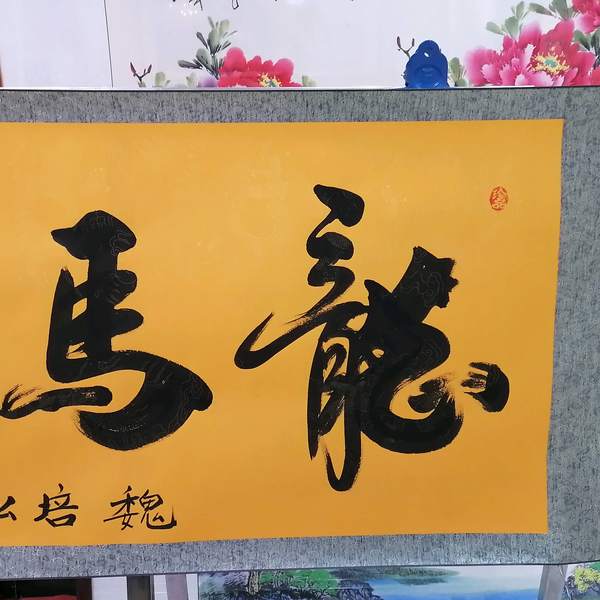 龍馬
魏培